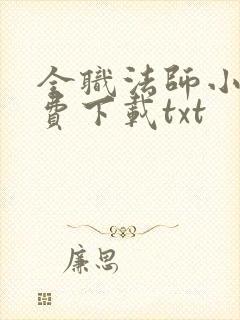 全職法師小
費下載txt
廉思